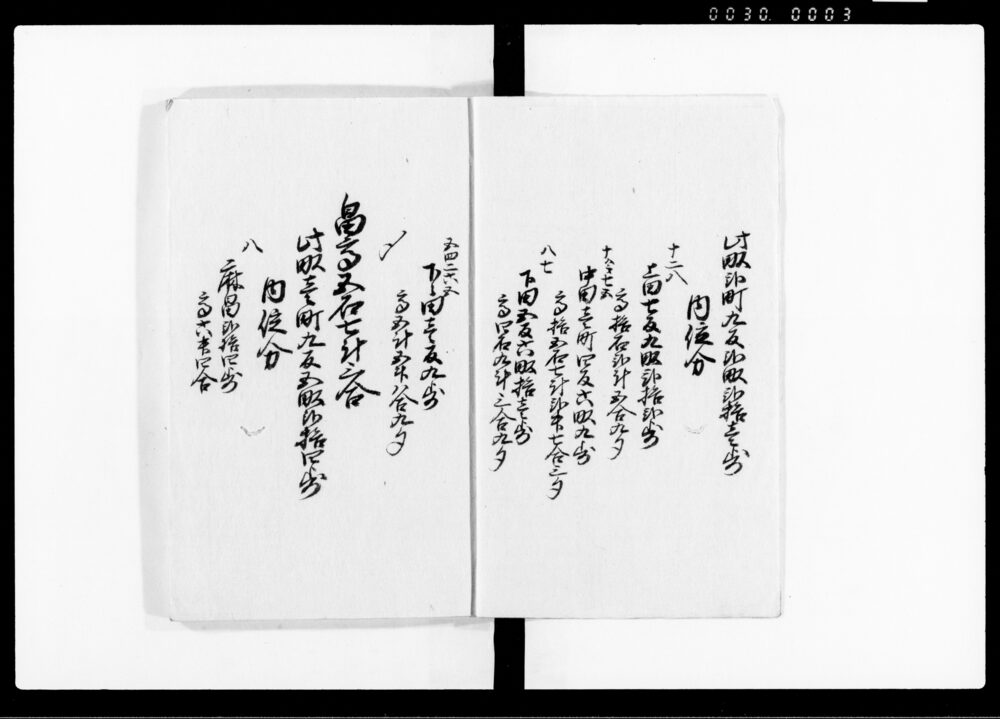 0030. 0003
此畝弐町九反弐畝弐拾壱歩
内位分
十二八
上田七反九畝弐拾弐歩
高拾石弐斗五合九夕
七五
中田壱町四反六畝九歩
高拾五石七斗弐升七合三夕
八七
下田五反六畝拾壱歩
高四石九斗三合九夕
五四二六五
下々田壱反九歩
高五斗五升八合九夕
〆
畠高五石七斗三合
此畝壱町九反五畝弐拾四歩
内位分
八
麻畠弐拾四歩
高六升四合